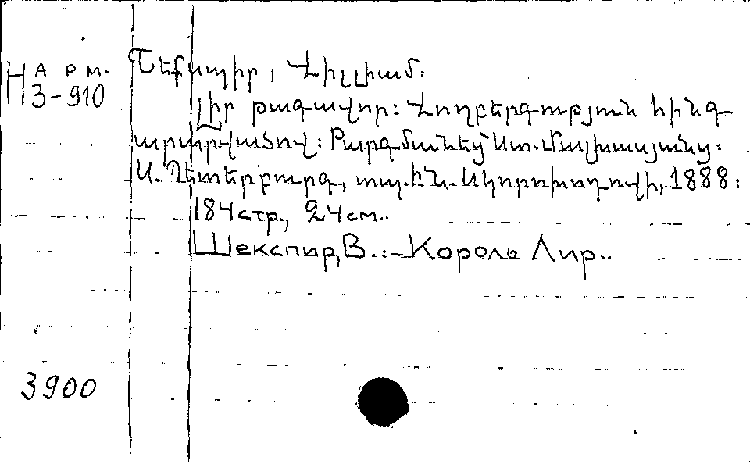 Н АРМ.
3-910
Շեքսպիր, Վիլլիամ.
Լիր թագավոր: Վողբերգություն հինգ
արարվածով: Բարգմանեց Ստ. Մալխասյանց:
Ս. Պետերբուրգ, տպ. Ի.Ն. Սկորոխոդովի, 1888:
184 стр., 24 см..
Шекспир, В. :- Король Лир..
3900